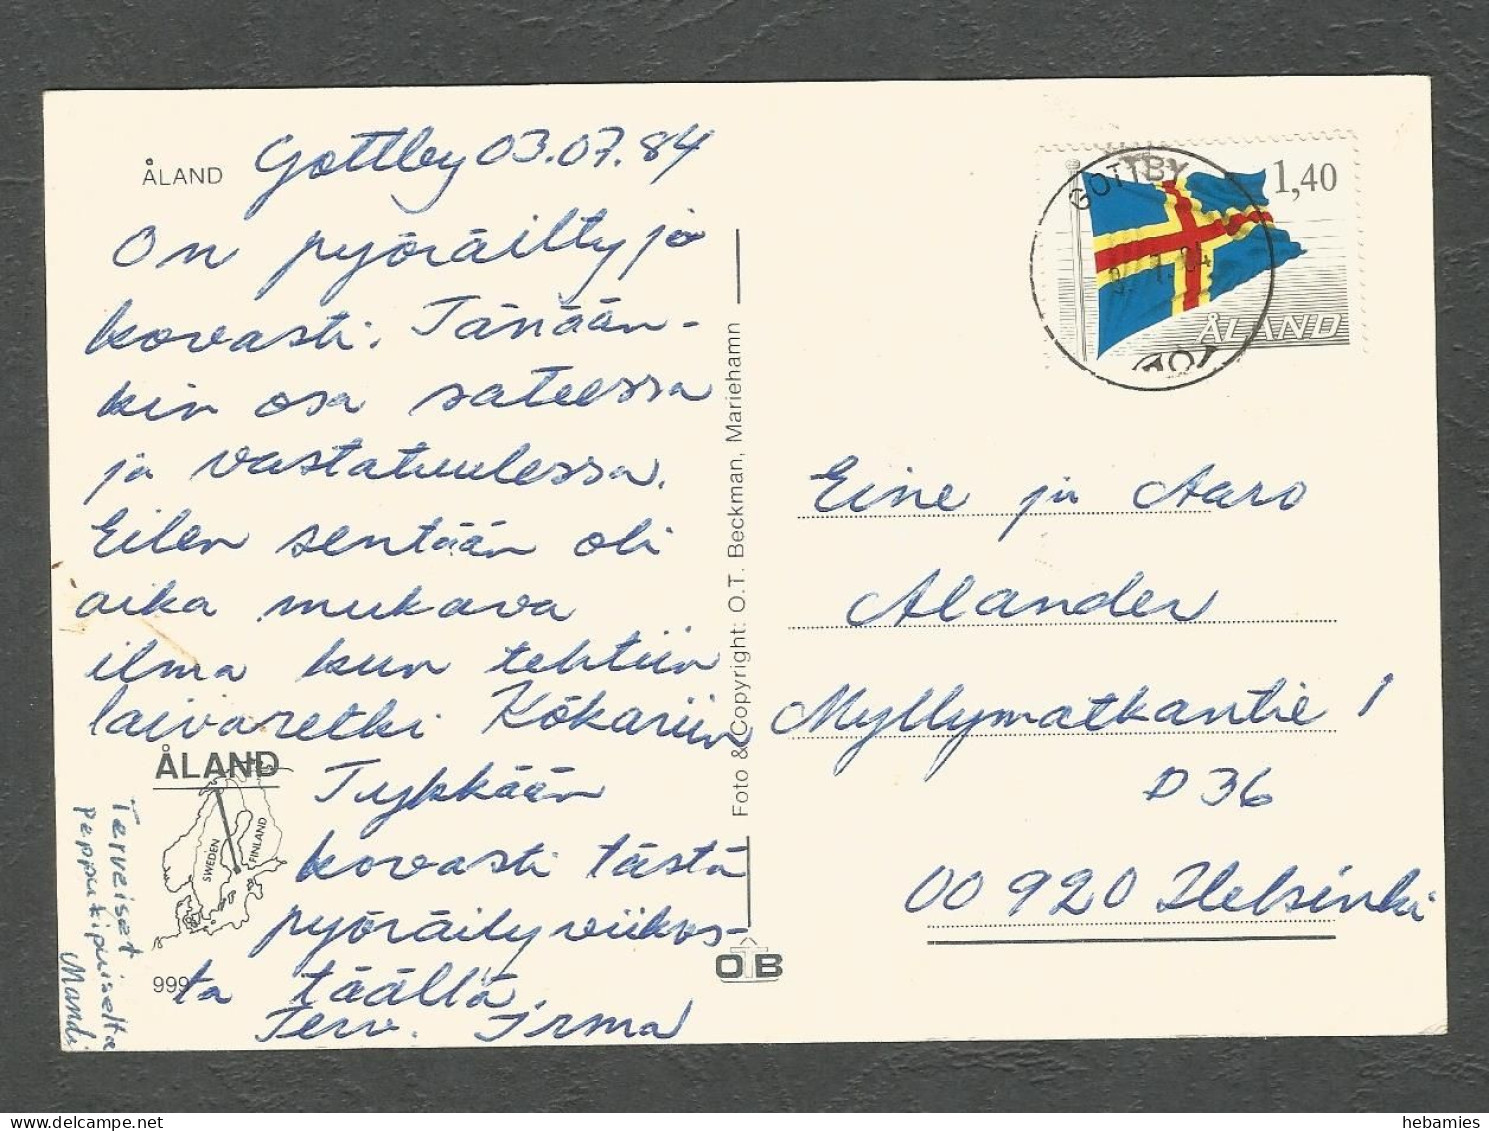 ÅLAND
Gottby 03.07.84
On pyöräilty jo
kovasti. Tänään-
kin osa sateessa
ja vastatuulessa.
Eilen sentään oli
aika mukava
ilma kun tehtiin
laivaretki Kökariin
Tykkään
kovasti tästä
pyöräilyviikos-
ta täällä.
Terv. Irma
Terveiset
peppukipuiselta
Mandi
ÅLAND
SWEDEN
FINLAND
999
Foto & Copyright: O.T. Beckman, Mariehamn
OTB
GOTTBY
1,40
ÅLAND
Eine ja Aaro
Alander
Myllymatkantie 1
D 36
00920 Helsinki
hebamies